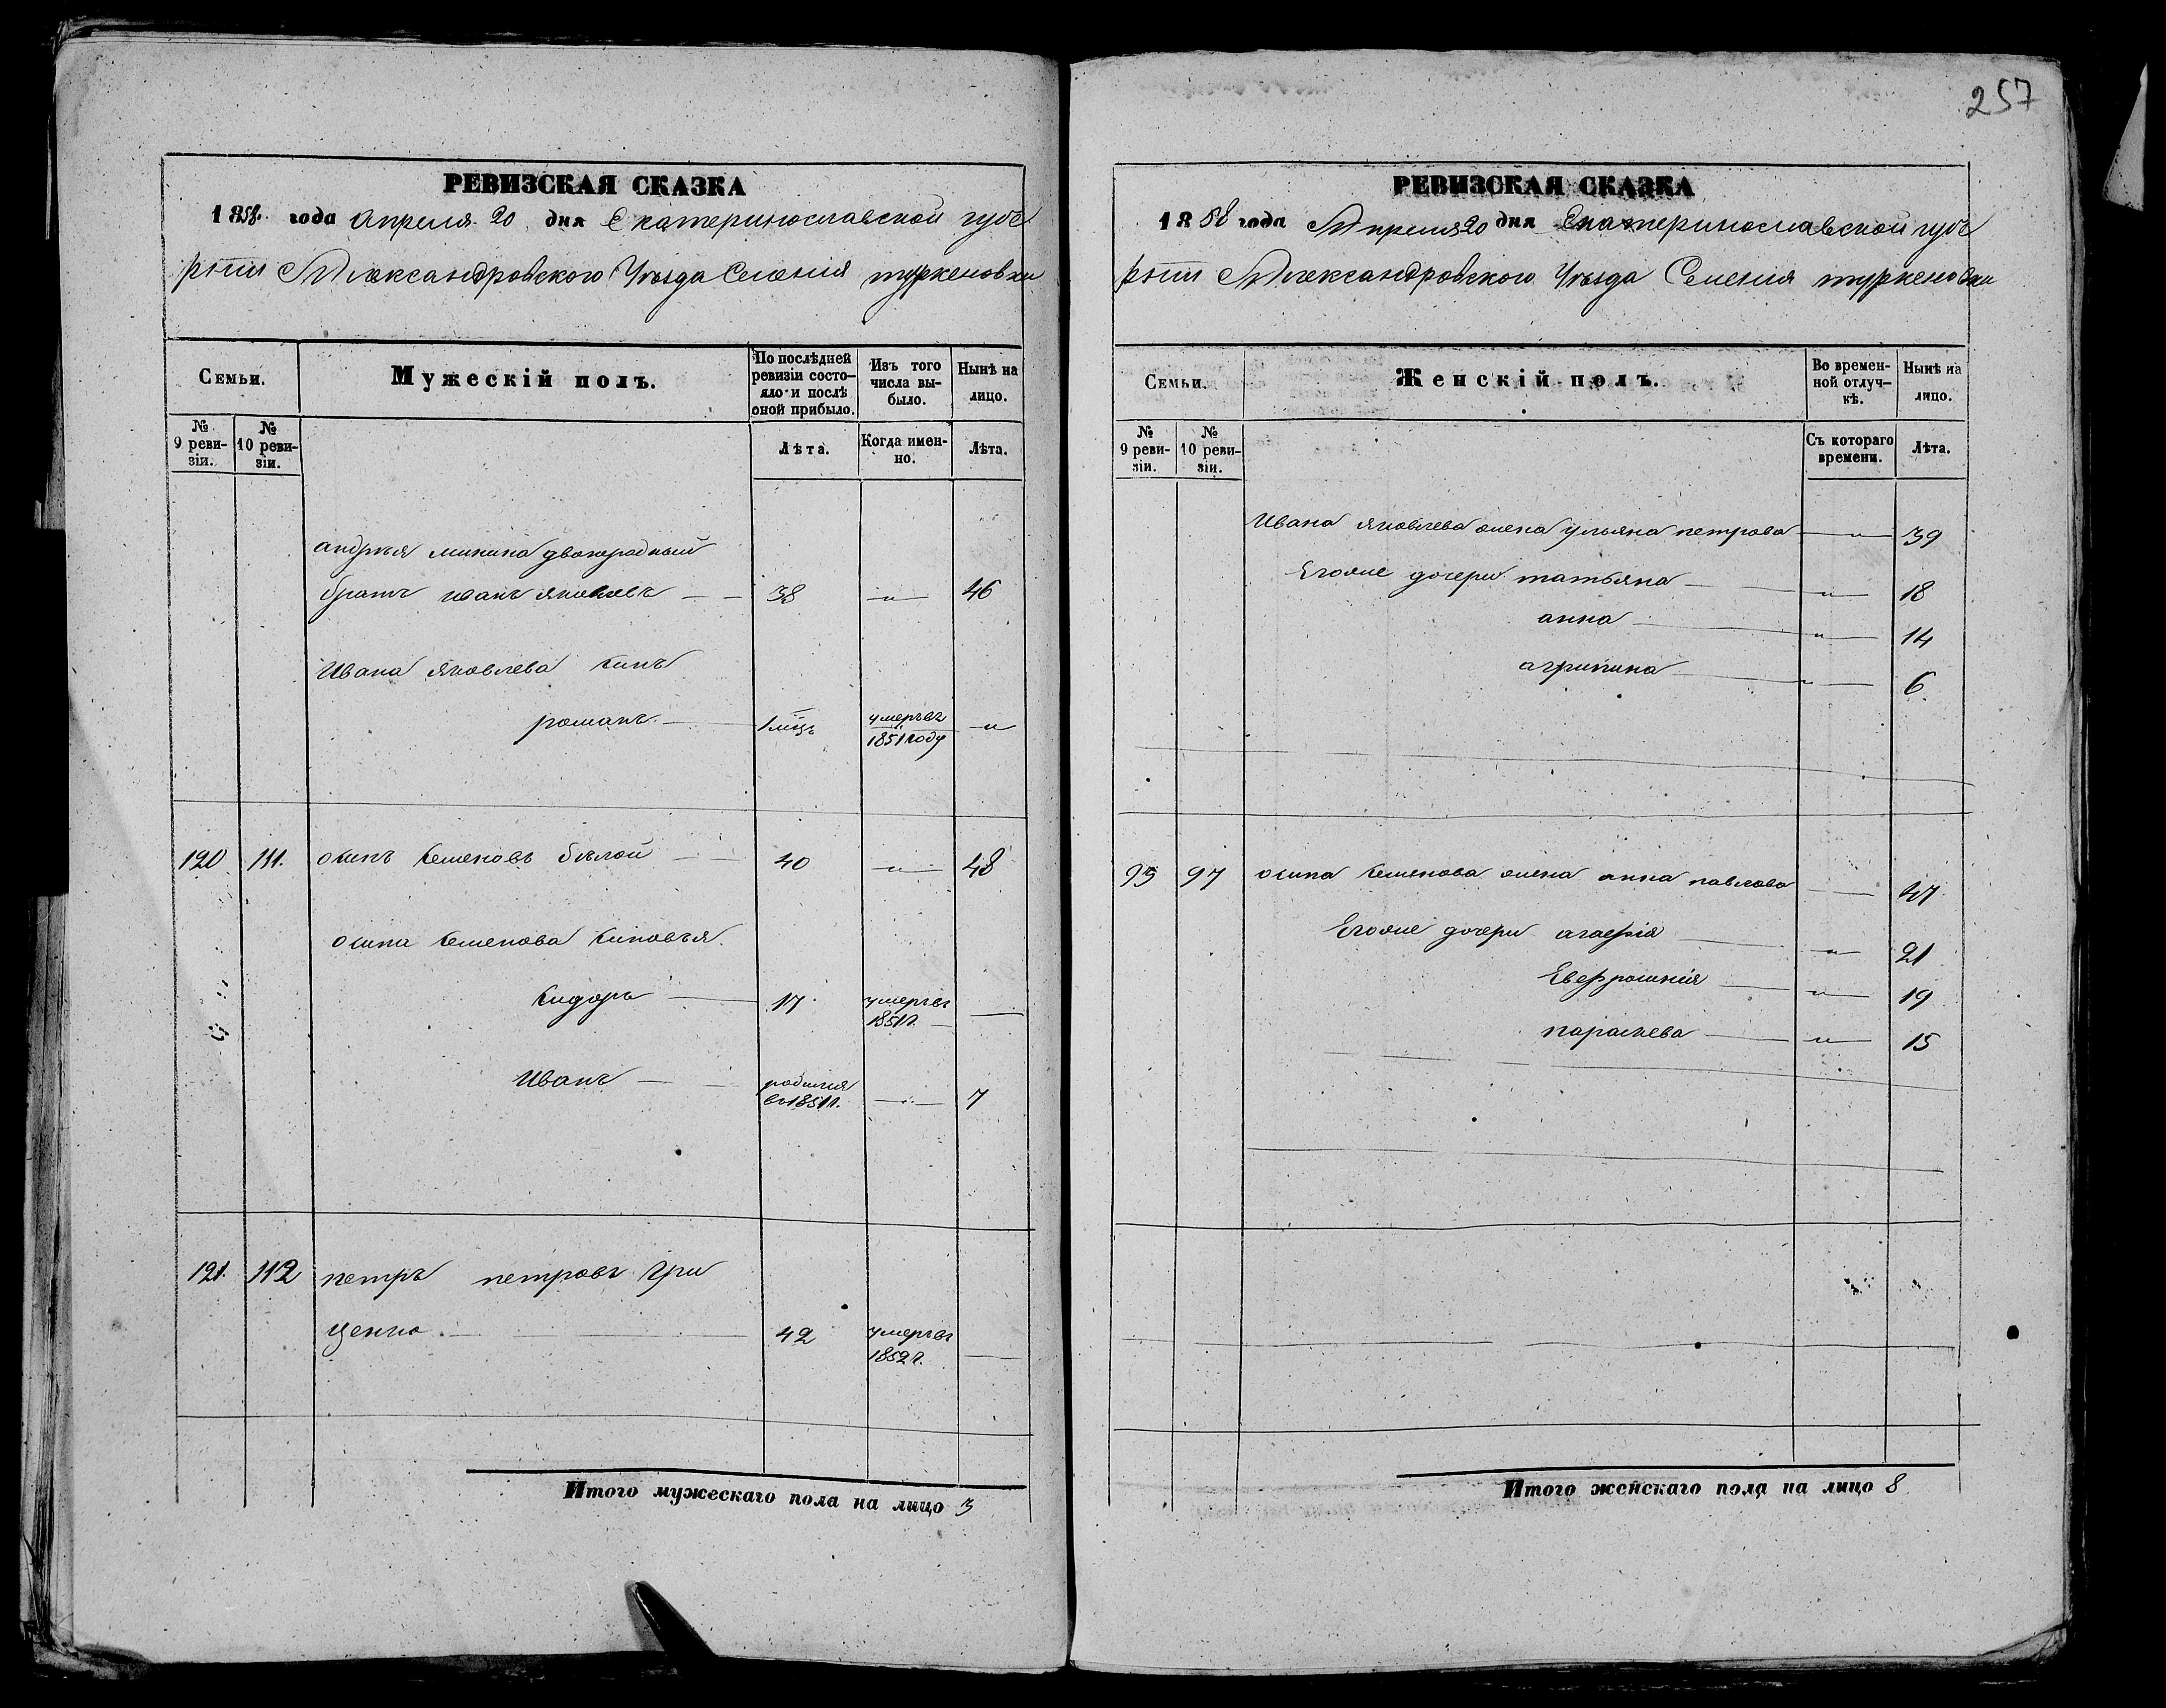 257
РЕВИЗСКАЯ СКАЗКА
1858 года Апреля 20 дня Екатеринославской губе
рніи Александровскаго Уѣзда Селенія туркеновки
Семьи.
Мужескій полъ.
По послѣдней ревизіи состо-
яло и послѣ оной прибыло.
Изъ того числа вы-
было.
Нынѣ на лицо.
№ 9 реви-
зіи.
№ 10 реви-
зіи.
Лѣта.
Когда имен-
но.
Лѣта.
андрѣя минина двоюродный
братъ иванъ яковлевъ 38 — " — 46
Ивана яковлева сынъ
романъ 1 мѣц. умеръ въ 1851 году "
120 111. осипъ семеновъ бѣлой 40 — " — 48
осипа семенова сыновья.
сидоръ 17 умеръ въ 1851 г. —
Иванъ родился въ 1851 г. — " — 7
121. 112 петръ петровъ гри
ценко 42 умеръ въ 1852 г. —
Итого мужескаго пола на лицо 3
РЕВИЗСКАЯ СКАЗКА
1858 года Апреля 20 дня Екатеринославской губе
рніи Александровскаго Уѣзда Селенія туркеновки
Семьи.
Женскій полъ.
Во времен-
ной отлуч-
кѣ.
Нынѣ на лицо.
№ 9 реви-
зіи.
№ 10 реви-
зіи.
Съ котораго времени.
Лѣта.
Ивана яковлева жена ульяна петрова — " — 39
Егоже дочери татьяна — " — 18
анна — " — 14
агрипина — " — 6
95 97 осипа семенова жена анна павлова — 47
Егоже дочери агафія — " — 21
Евфросинія — " — 19
параскева — " — 15
Итого женскаго пола на лицо 8